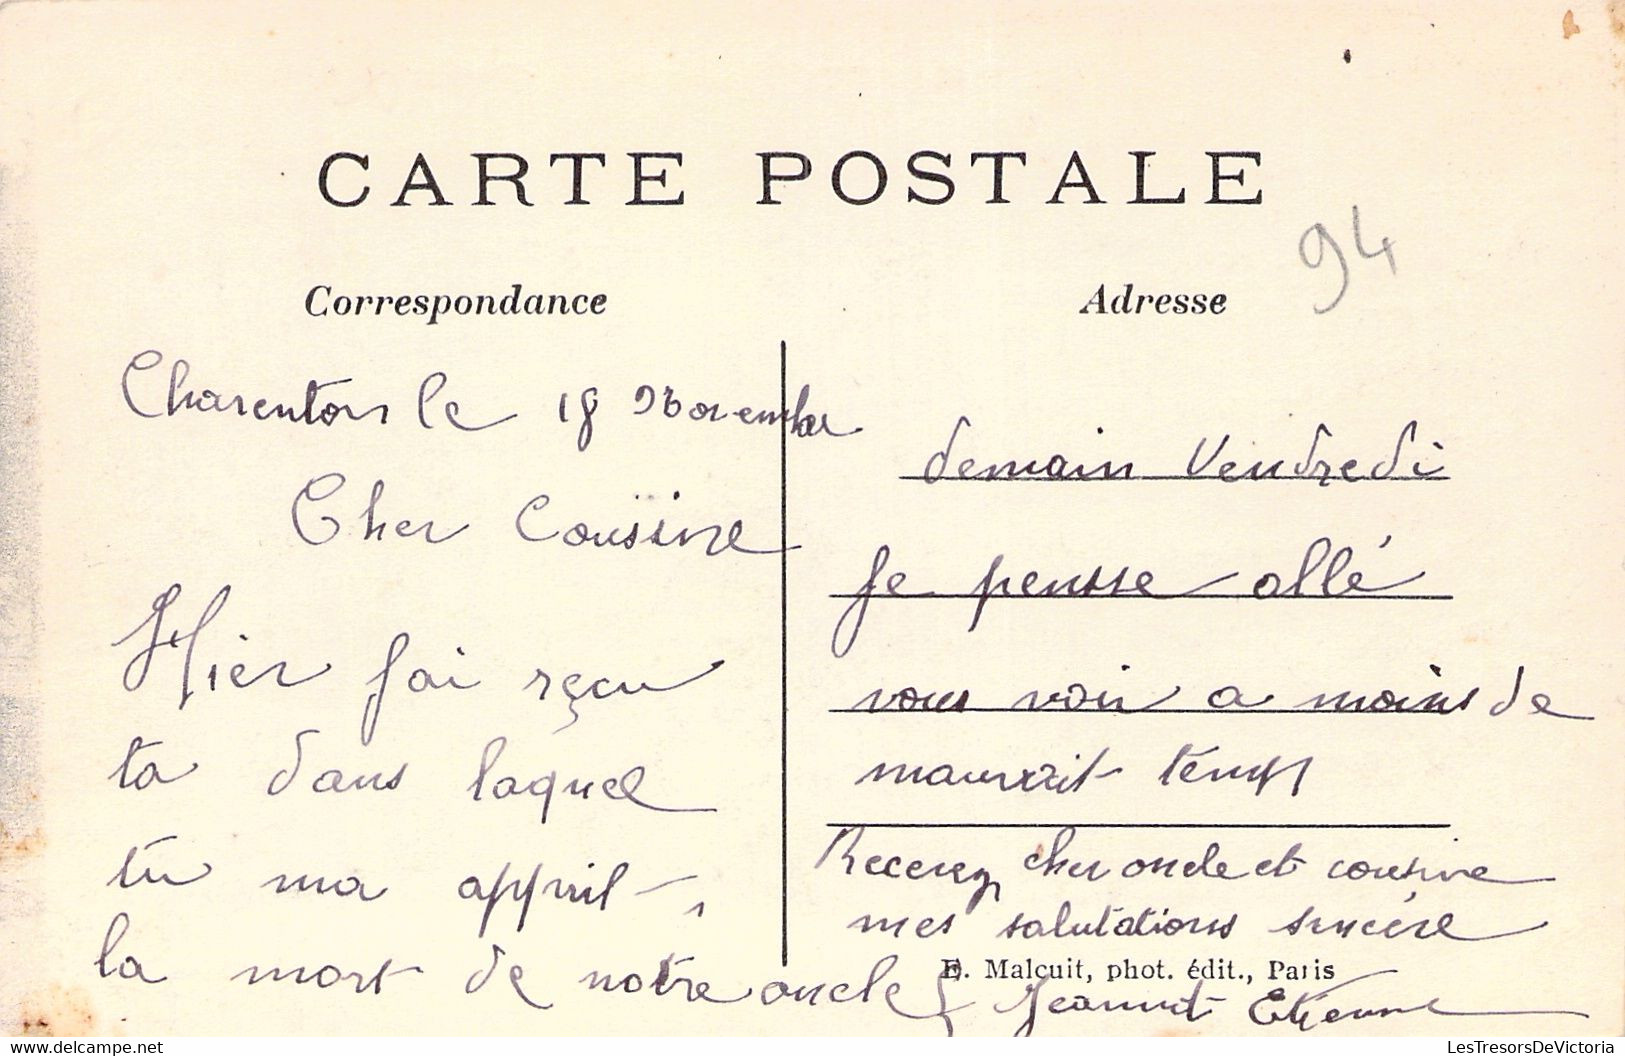 CARTE POSTALE
94
Correspondance
Charenton le 18 Novembre
Cher Cousine
Hier j'ai reçu
ta dans laquel
tu ma apprit
la mort de notre oncle
Adresse
demain Vendredi
Je pensse allé
vous voir a moins de
mauvait temps
Recevez cher oncle et cousine
mes salutations sincère
E. Malcuit, phot. édit., Paris
Jeannit Etienne
LesTresorsDeVictoria